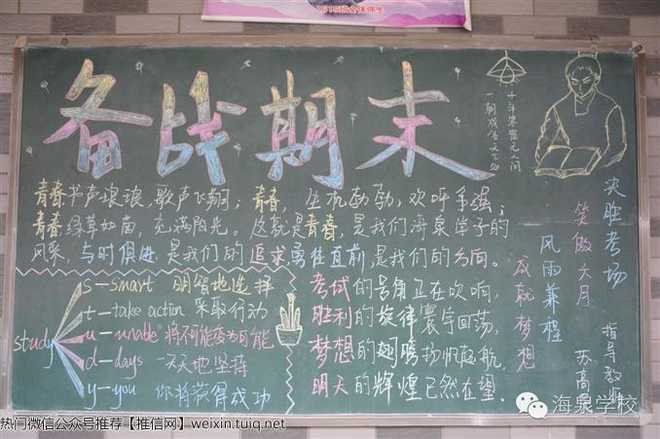 备战期末
十年寒窗无人问
一朝成名天下知
青春,书声琅琅,歌声飞翔;青春,生机勃勃,欢呼手舞;
青春绿草如茵,充满阳光。这就是青春,是我们海泉学子的
风采,与时俱进,是我们的追求,勇往直前,是我们的方向。
study
s-smart 明智地选择
t-take action 采取行动
u-unable 将不可能变为可能
d-days 一天天地坚持
y-you 你将获得成功
考试的号角正在吹响,
胜利的旋律寰宇回荡,
梦想的翅膀扬帆起航,
明天的辉煌已然在望。
决胜考场
笑傲六月
风雨兼程
成就梦想
指导教师
苏高
海泉学校
热门微信公众号推荐【推信网】weixin.tuiq.net